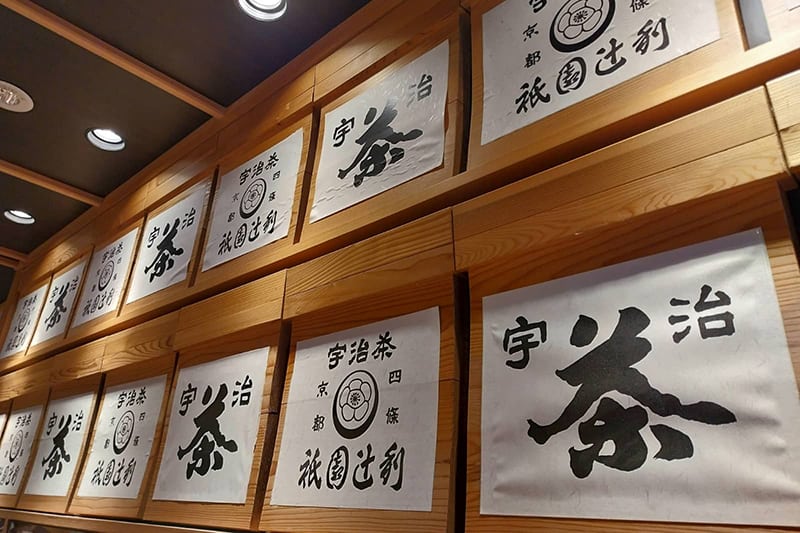 宇治
茶
宇治茶
京都
四條
祇園辻利
宇治
茶
宇治茶
京都
四條
祇園辻利
宇治
茶
京都
條
祇園辻利
宇治茶
京都
四條
祇園辻利
宇治
茶
宇治茶
京都
四條
祇園辻利
宇治
茶
宇治茶
京都
四條
祇園辻利
宇治
茶